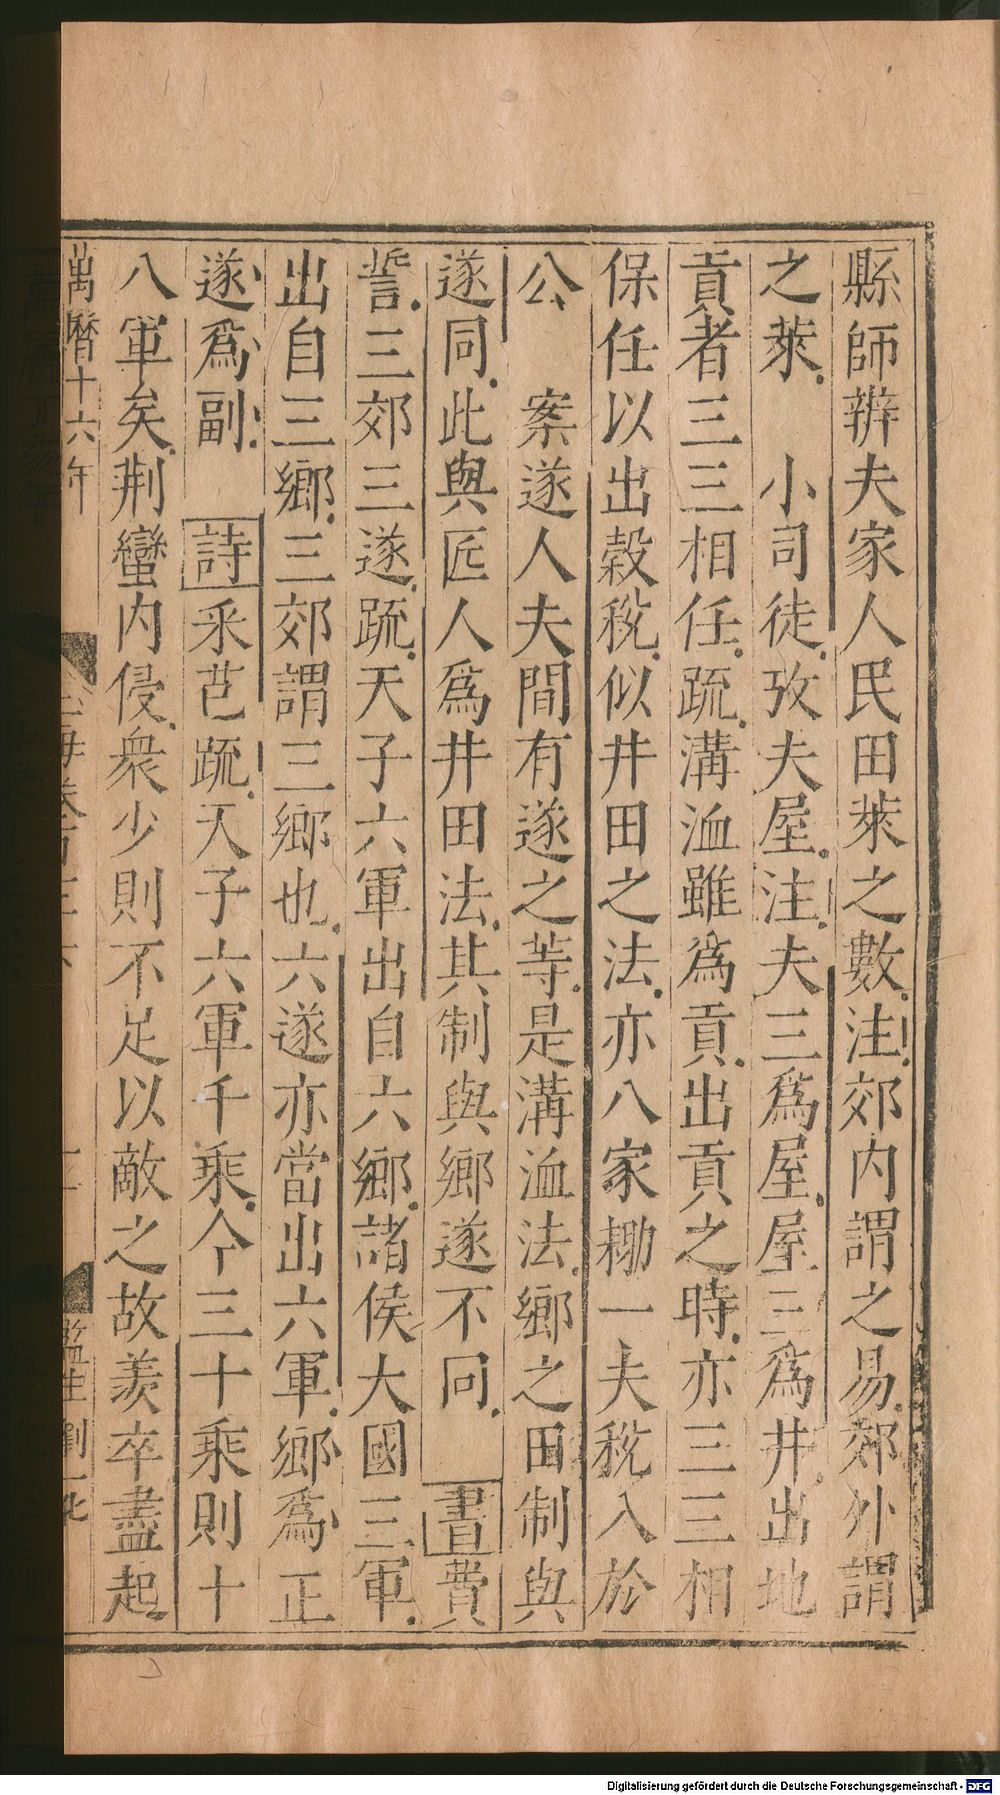 縣師辨夫家人民田萊之數注郊内謂之易郊外謂
之萊　小司徒攷夫屋注夫三爲屋屋三爲井出地
貢者三三相任疏溝洫雖爲貢出貢之時亦三三相
保任以出穀稅似井田之法亦八家耡一夫稅入於
公　案遂人夫間有遂之等是溝洫法鄉之田制與
遂同此與匠人爲井田法其制與鄉遂不同　書費
誓三郊三遂疏天子六軍出自六鄉諸侯大國三軍
出自三鄉三郊謂三鄉也六遂亦當出六軍鄉爲正
遂爲副　詩采芑疏天子六軍千乘今三十乘則十
八軍矣荆蠻内侵衆少則不足以敵之故羨卒盡起
萬曆十六年
監生劉
Digitalisierung gefördert durch die Deutsche Forschungsgemeinschaft - DFG